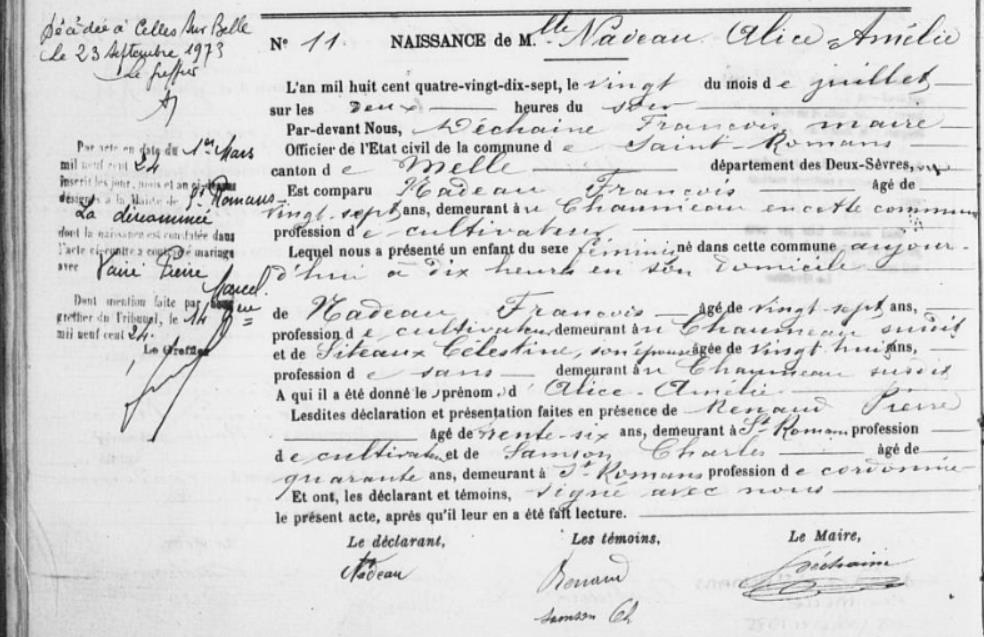 Décédée à Celles sur Belle
le 23 septembre 1973
Le greffier
N° 11. NAISSANCE de M.lle Nadeau Alice-Amélie
L'an mil huit cent quatre-vingt-dix-sept, le vingt du mois de juillet
sur les deux heures du soir
Par-devant Nous, Déchaine François, maire
Officier de l'Etat civil de la commune de Saint-Romans
canton de Melle département des Deux-Sèvres,
Est comparu Nadeau François âgé de
vingt-sept ans, demeurant à Chaumeau en cette commune
profession de cultivateur
Lequel nous a présenté un enfant du sexe féminin, né dans cette commune aujour-
d'hui à dix heures en son domicile
de Nadeau François âgé de vingt-sept ans,
profession de cultivateur, demeurant à Chaumeau susdit
et de Siteaux Célestine, son épouse âgée de vingt huit ans,
profession de sans demeurant à Chaumeau susdit
A qui il a été donné le prénom d'Alice-Amélie
Lesdites déclaration et présentation faites en présence de Renaud Pierre
âgé de trente-six ans, demeurant à St-Romans profession
de cultivateur et de Samson Charles âgé de
quarante ans, demeurant à St Romans profession de cordonnier
Et ont, les déclarant et témoins, signé avec nous
le présent acte, après qu'il leur en a été fait lecture.
Le déclarant, Les témoins, Le Maire,
Nadeau Renaud Déchaine
Samson Ch
Par acte en date du 1er Mars
mil neuf cent 24
inscrit les jour, mois et an ci-dessus
désignés à la Mairie de St Romans
La dénommée
dont la naissance est constatée dans
l'acte ci-contre a contracté mariage
avec Pierre
Marcel
Dont mention faite par
greffier du Tribunal, le 14
mil neuf cent 24.
Le Greffier